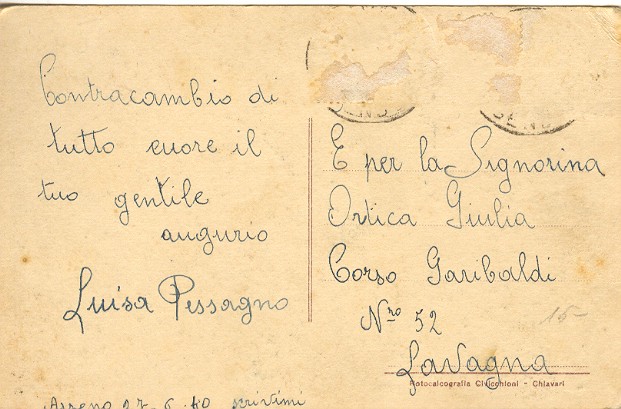 Contracambio di
tutto cuore il
tuo gentile
augurio
Luisa Pessagno
27 6 40 scrivimi
E per la Signorina
Ortica Giulia
Corso Garibaldi
Nro 52
15-
Lavagna
Fotocalcografia Civicchioni - Chiavari